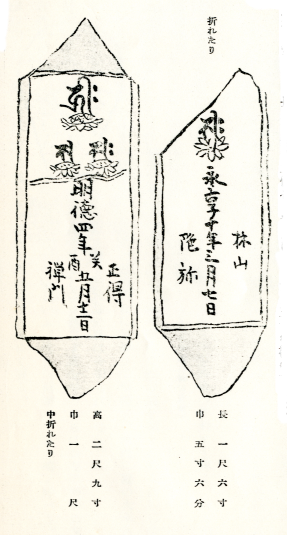 折れたり
林山
永享十年三月七日
陀弥
長一尺六寸
巾五寸六分
正得
明德四年癸酉五月十二日
禪門
高二尺九寸
巾一尺
中折れたり